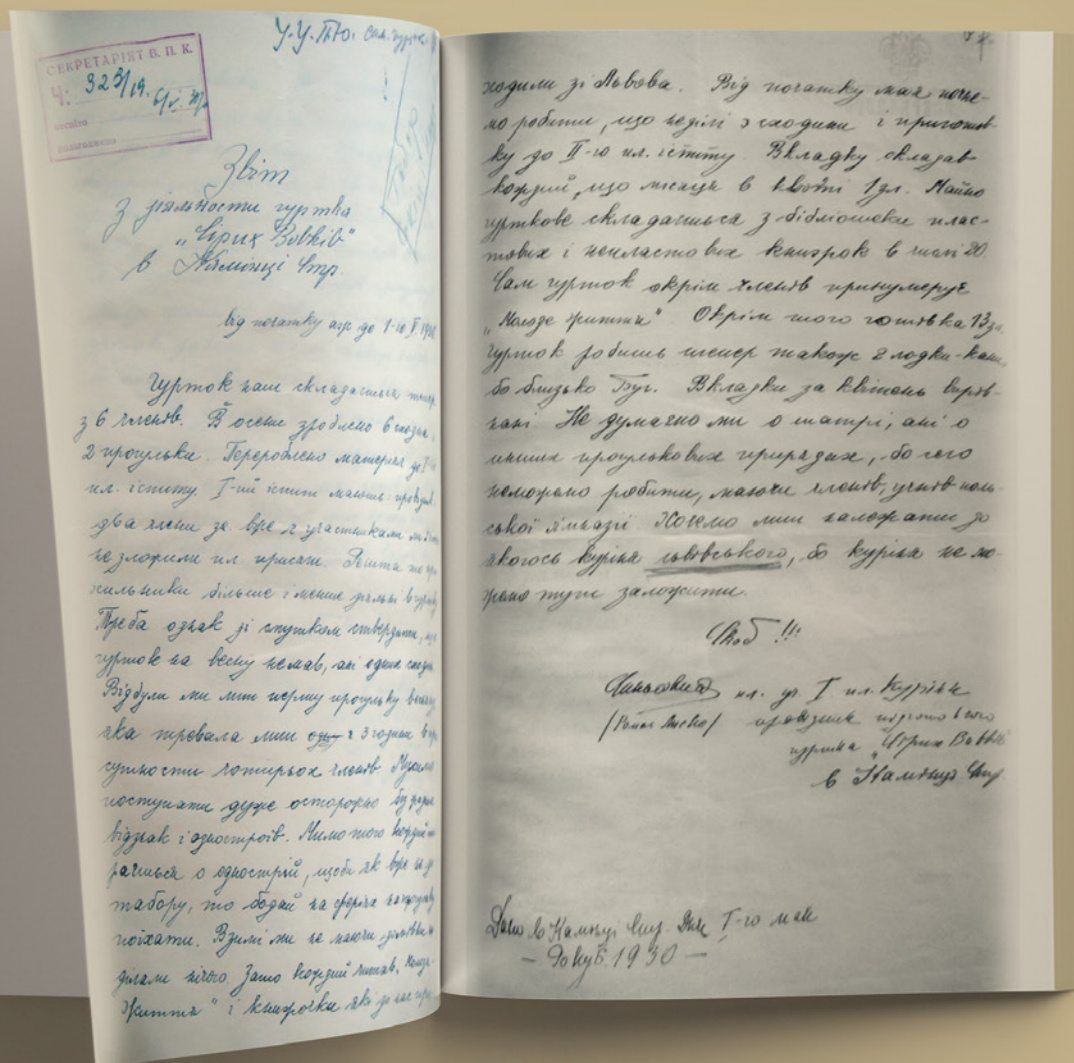 У.У.П.Ю. Сам. гурток.
СЕКРЕТАРІЯТ В. П. К.
Ч: 323/19. 6/V. 30
Звіт
з діяльности гуртка
„Сірих Вовків"
в Камінці Стр.
від початку до 1-го V. 1930
Гурток наш складається тепер
з 6 членів. В осени зроблено 6 сходин,
2 прогульки. Перероблено матеріял до І-го
пл. іспиту. І-ий іспит мають: провідник
два члени за вже з участниками
не зложили пл. присяги. Решта то при-
хильники більше і менше діяльні в гуртку
Треба однак зі смутком ствердити, що
гурток на весну не мав, ані одних сходин
Відбули ми лиш першу прогульку весняну
яка тревала лиш 3 години в при-
сутности чотирьох членів. Мусимо
поступати дуже осторожно без
відзнак і одностроїв. Мимо того кождий ста-
рається о однострій, щоби як вже не до
табору, то бодай на ферії на прогульку
поїхати. Взимі ми не маючи домівки не
ділали нічого. Зате кождий читав „Молоде
Життя" і книжочки які до нас при-
ходили зі Львова. Від початку мая почне-
мо робити, що неділі з сходини і приготов-
ку до ІІ-го пл. іспиту. Вкладку складав
кождий, що місяця в квоті 1 зл. Майно
гурткове складається з бібліотеки плас-
тових і непластових книжок в числі 20.
Сам гурток окрім членів принумерує
„Молоде життя" Окрім того готівка 13 зл.
Гурток робить тепер також 2 лодки-каяки
бо близько Буг. Вкладки за квітень вирів-
нані. Не думаємо ми о шатрі, ані о
инших прогулькових приладах, бо сего
неможемо робити, маючи членів, учнів поль-
ської гімназії. Хочемо лиш належати до
якогось куріня львовського, бо куріня не мо-
жемо тут заложити.
Скоб !!!
пл. уч. І пл. Куріня
провідник підготовчого
гуртка „Сірих Вовків"
в Камінці Стр.
Дано в Камінці Стр. Дня І-го мая
— Року Б. 1930 —